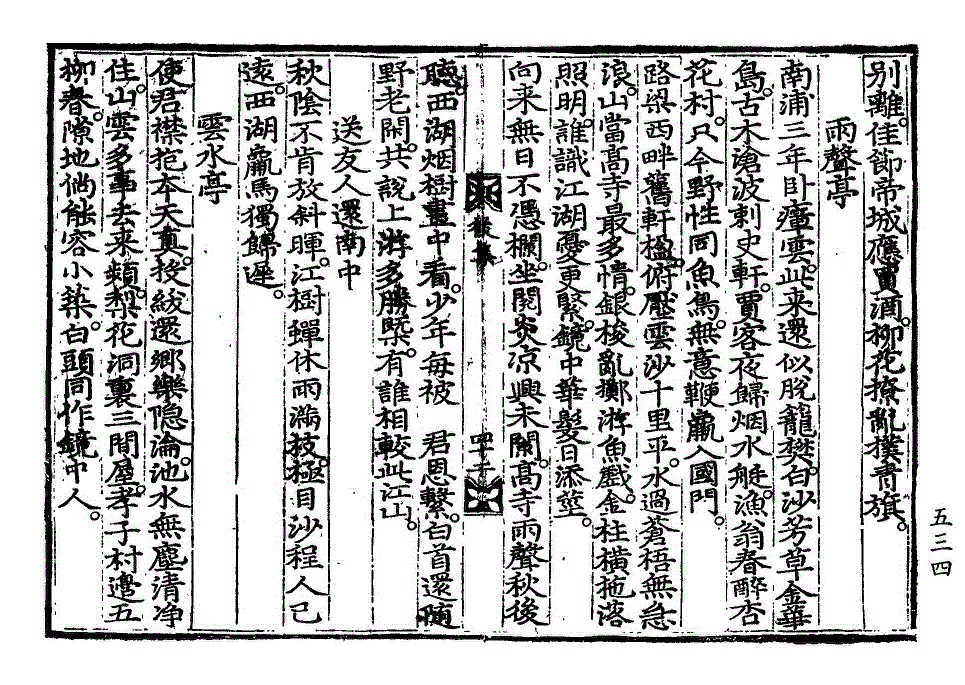 别離佳節帝城應賈酒柳花撩亂撲青旗
雨聲亭
南浦三年卧瘴雲此来還似脫籠樊白沙芳草金華
島古木滄波刺史軒賈客夜歸烟水艇漁翁春醉杏
花村只今野性同魚鳥無意鞭羸入國門
路梁西畔舊軒楹俯壓雲沙十里平水過蒼梧無急
浪山當高寺最多情銀梭亂擲游魚戲金柱橫拖落
照明誰識江湖憂更緊鏡中華髮日添莖
向来無日不憑欄坐閱炎凉興未闌高寺雨聲秋後
聽西湖烟樹畫中看少年每被 君恩繫白首還隨
野老閑共說上游多勝槩有誰相較此江山
送友人還南中
秋陰不肯放斜暉江樹蟬休雨滿枝極目沙程人已
遠西湖羸馬獨歸遲
雲水亭
使君襟抱本天真投紱還鄉樂隐淪池水無塵清净
住山雲多事去来頻梨花洞裏三間屋孝子村邊五
柳春隙地倘能容小築白頭同作鏡中人
五三四